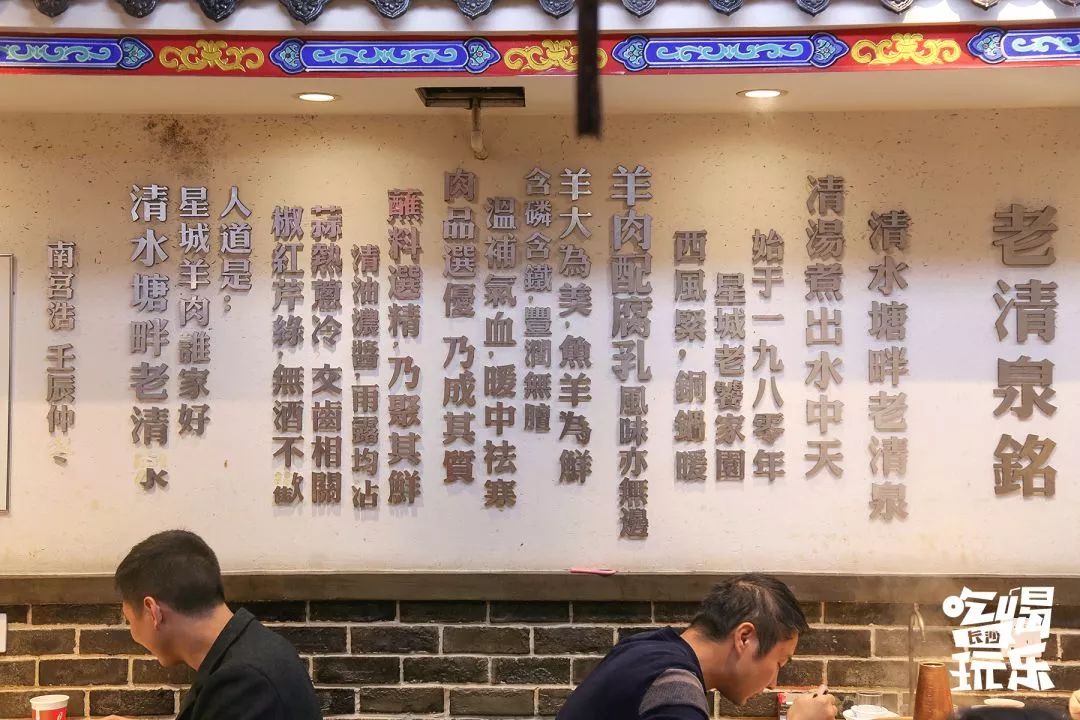 老清泉銘
清水塘畔老清泉
清湯煮出水中天
始于一九八零年
星城老饕家園
西風緊，銅鍋暖
羊肉配腐乳風味亦無邊
羊大為美，魚羊為鮮
含磷含鐵，豐潤無膻
溫補氣血，暖中祛寒
肉品選優 乃成其質
蘸料選精，乃聚其鮮
清油濃醬，雨露均沾
蒜熱蔥冷 交齒相關
椒紅芹綠，無酒不歡
人道是：
星城羊肉誰家好
清水塘畔老清泉
南宮浩 壬辰仲冬
吃喝
长沙
玩乐